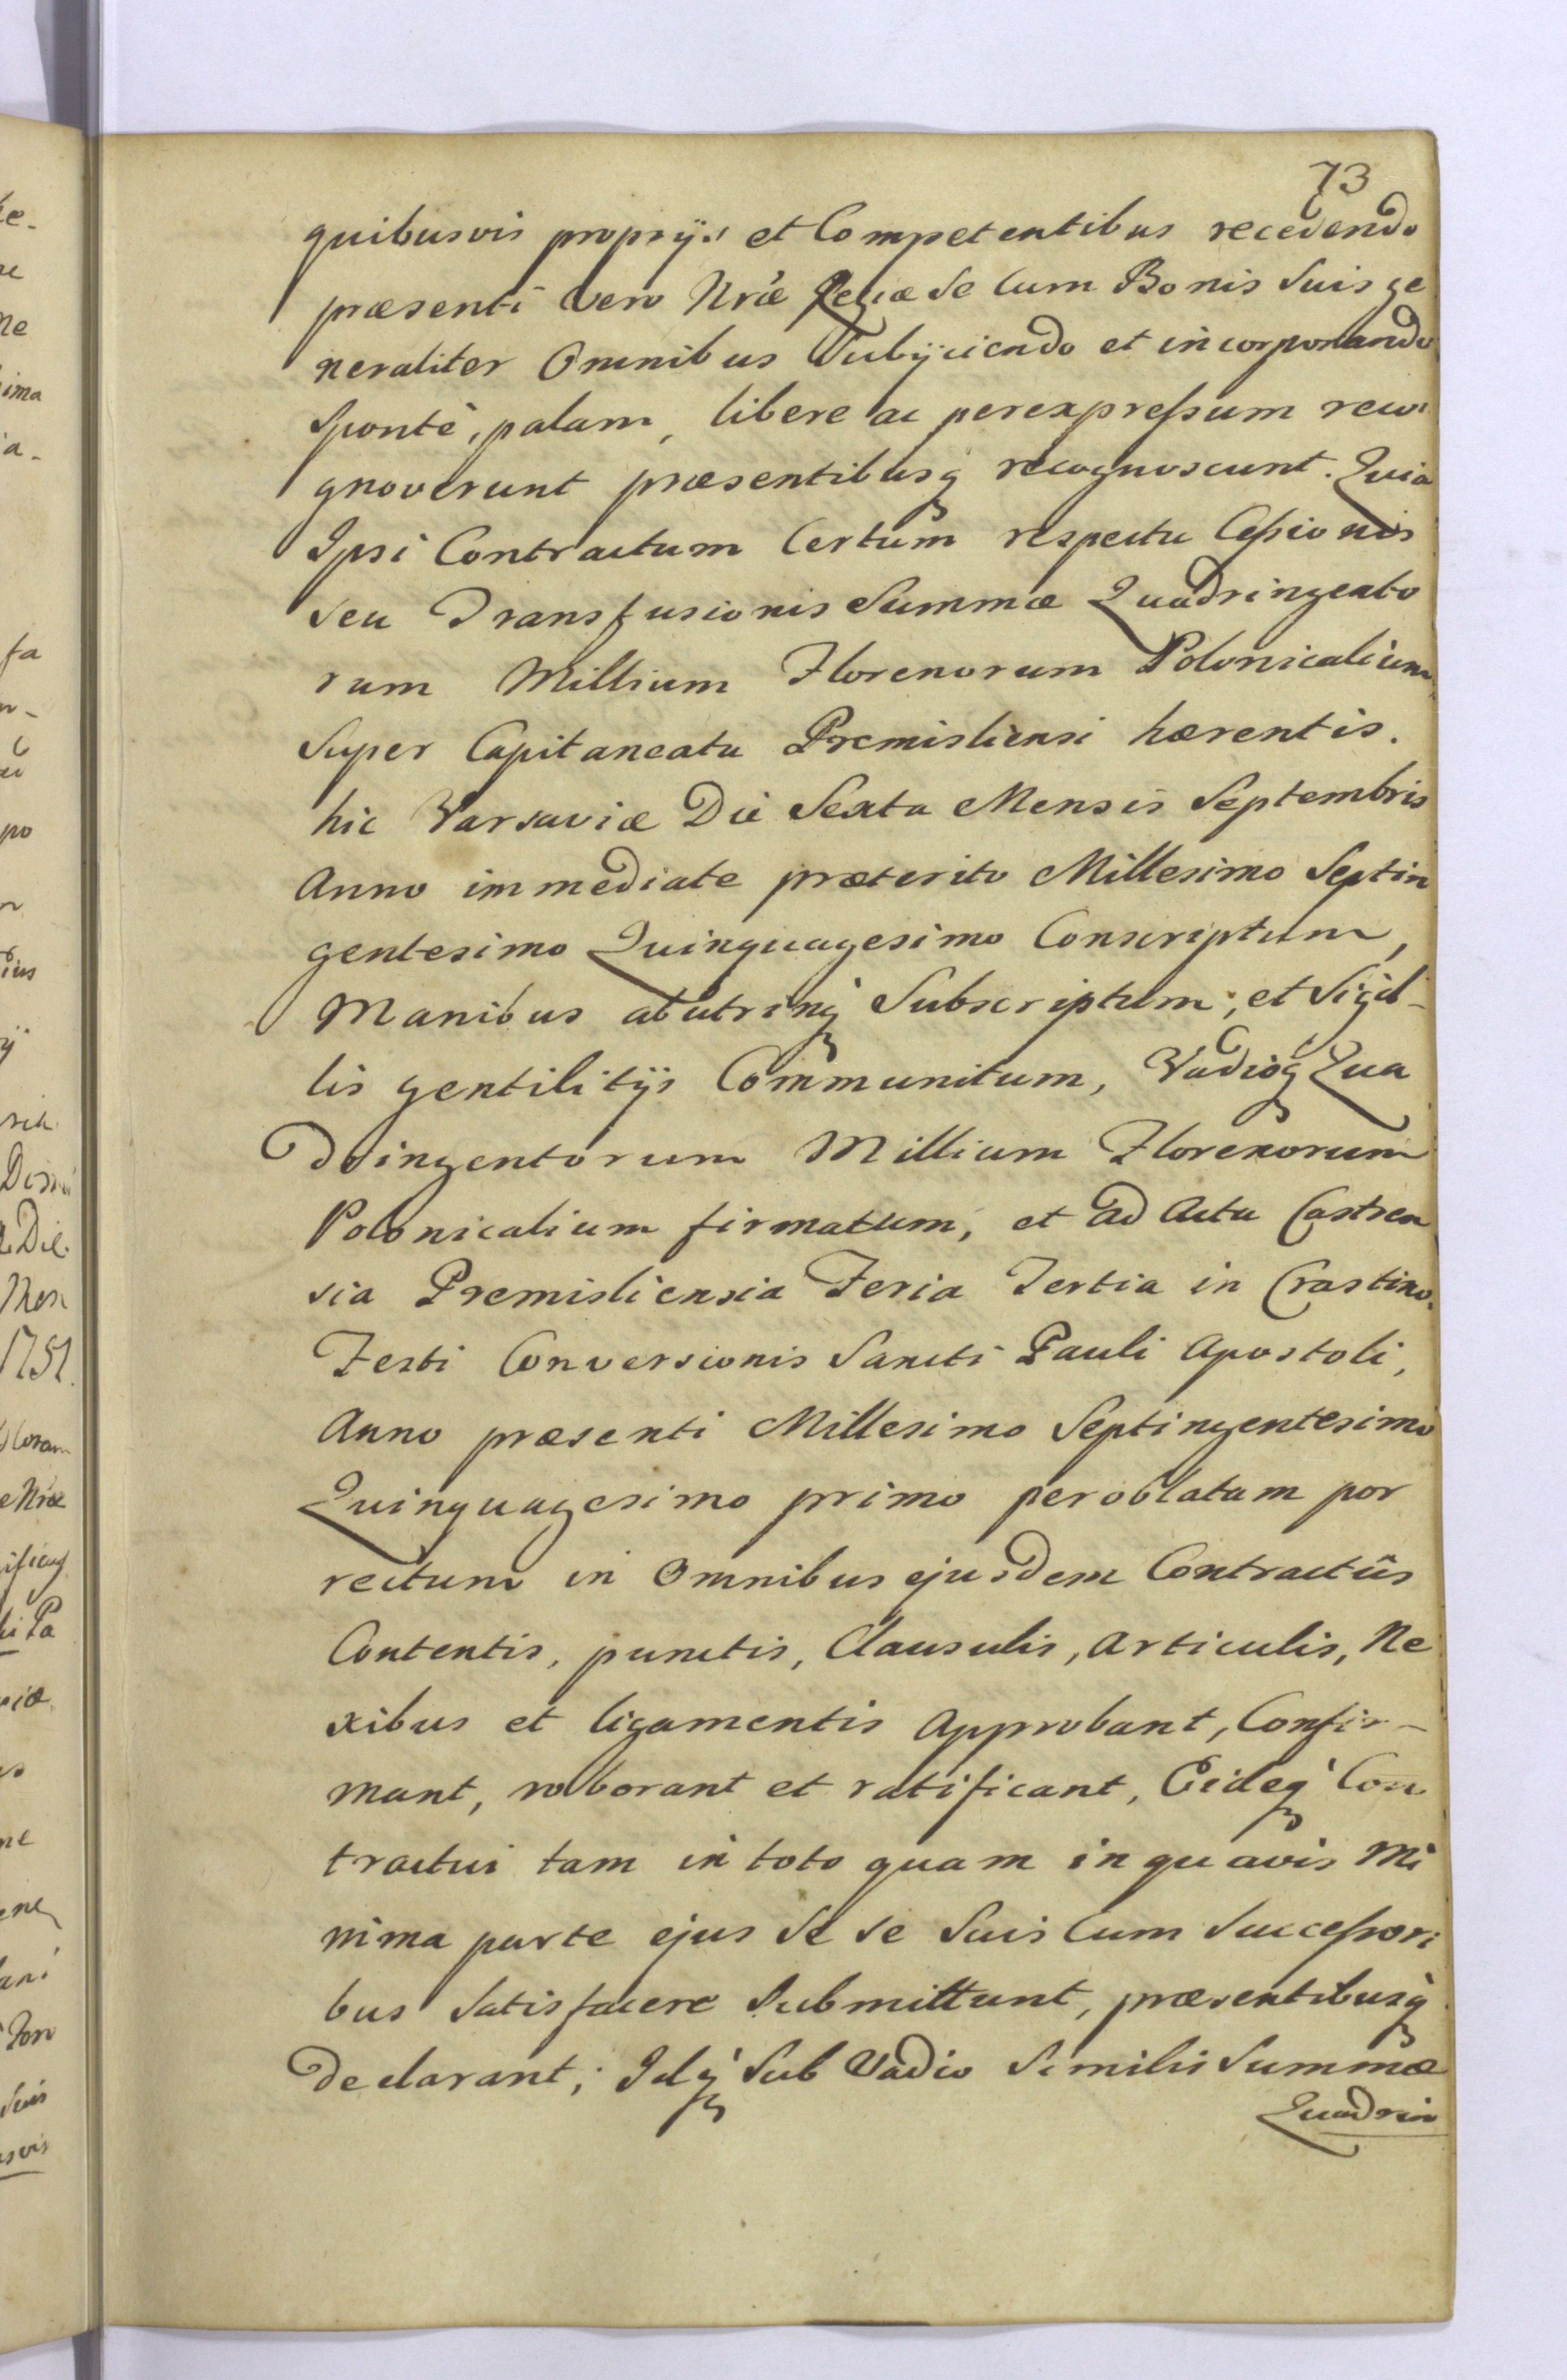 73
quibusvis proprijs et Competentibus recedendo
præsenti vero Nræ Regiæ Se Cum Bonis Suis ge
neraliter Omnibus Subijciendo et incorporando
Sponte, palam, libere ac perexpreſsum reco
gnoverunt præsentibusq recognoscunt. Quia
Ipsi Contractum Certum respectu Ceſsionis
seu Transfusionis Summæ Quadringento
rum Millium Florenorum Polonicalium,
Super Capitaneatu Premisliensi hærentis.
hic Varsaviæ Die Sexta Mensis Septembris
Anno immediate præterito Millesimo Septin
gentesimo Quinquagesimo Conscriptum,
Manibus abutrinq Subscriptum, et Sigil-
lis gentilitijs Communitum, Vadioq Qua
dringentorum Millium Florenorum
Polonicalium firmatum, et ad Acta Castren
sia Premisliensia Feria Tertia in Crastino.
Festi Conversionis Sancti Pauli Apostoli,
Anno præsenti Millesimo Septingentesimo
Quinquagesimo primo peroblatam por
rectum in Omnibus ejusdem Contractûs
Contentis, punctis, Clausulis, Articulis, Ne
xibus et ligamentis Approbant, Confir-
mant, roborant et ratificant, Eideq Con
tractui tam in toto quam in quavis Mi
nima parte ejus Se se Suis Cum Succeſsori
bus Satisfacere Submittunt, præsentibusq
declarant; Idq Sub Vadio Similis Summæ
Quadrin